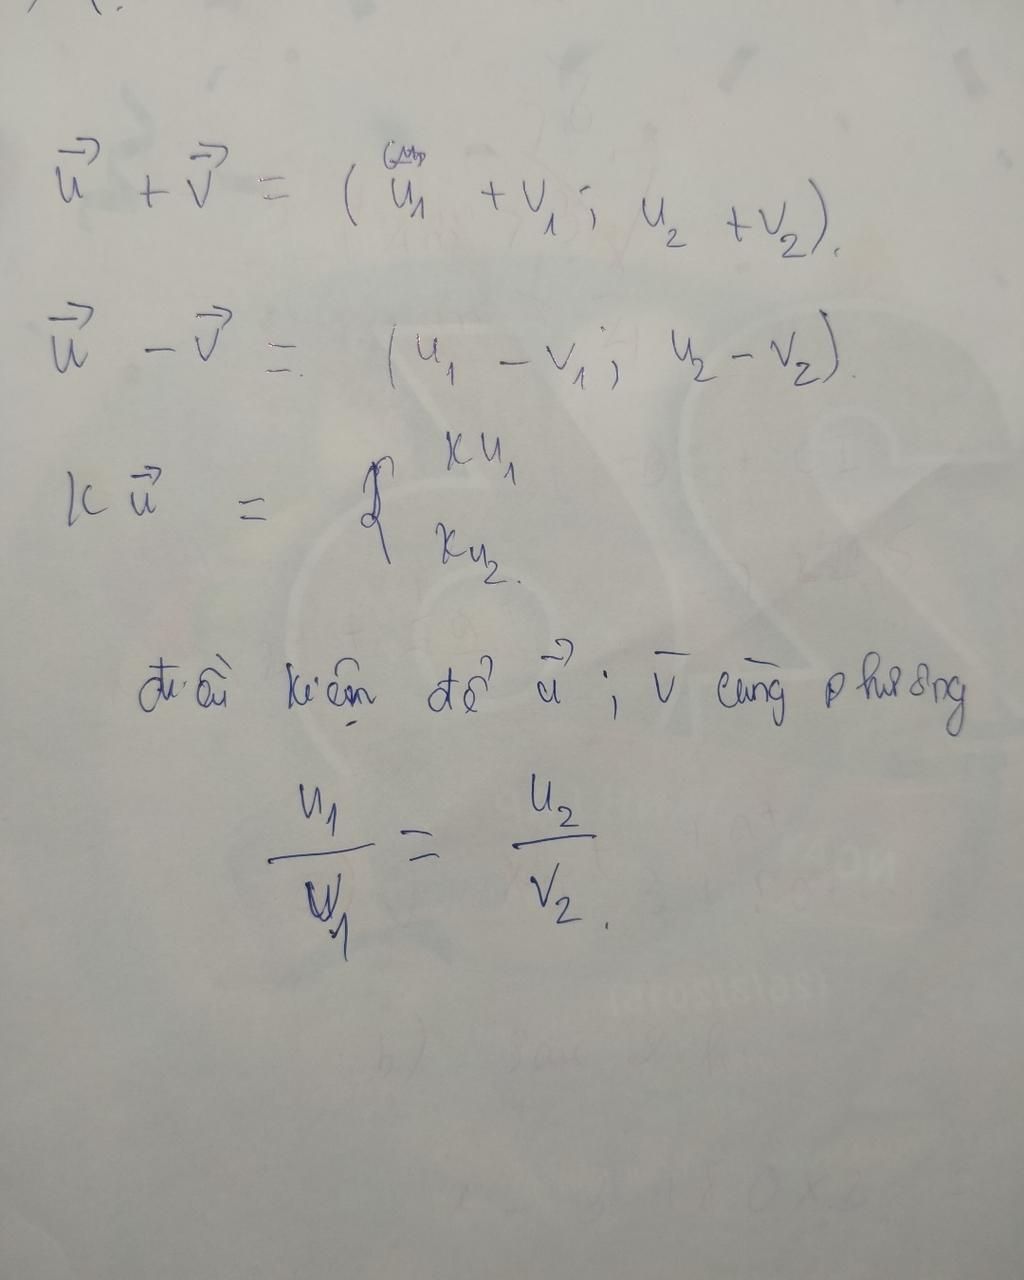 u⃗ + v⃗ = (u₁ + v₁; u₂ + v₂).
u⃗ - v⃗ = (u₁ - v₁; u₂ - v₂).
K u⃗ = { Ku₁
Ku₂.
điều kiện để u⃗ ; v̅ cùng phương
u₁/v₁ = u₂/v₂.